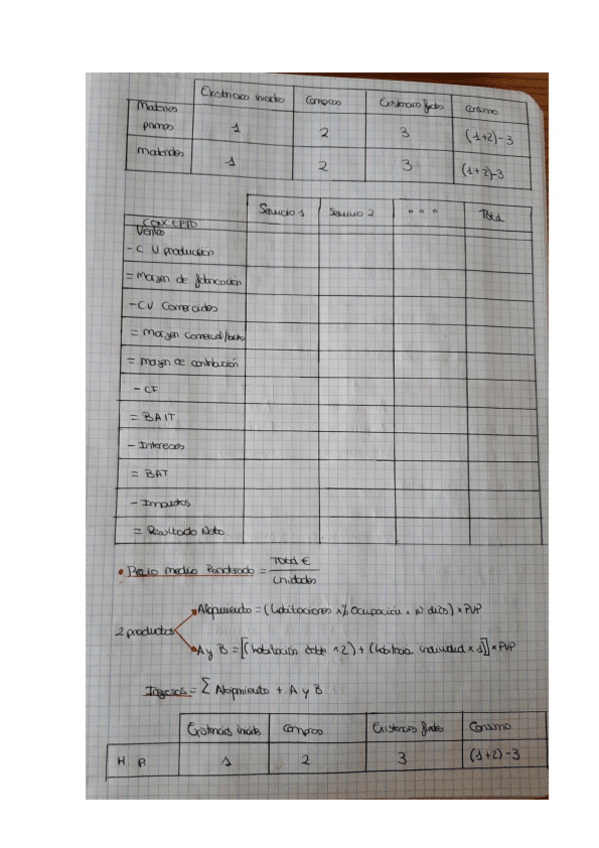 Existencias iniciales Compras Existencias finales Consumo
Materias primas 1 2 3 (1+2)-3
materiales 1 2 3 (1+2)-3
Servicio 1 Servicio 2 ° ° ° Total
CONCEPTO
Ventas
- C V producción
= Margen de fabricación
- CV Comerciales
= Margen Comercial/bruto
= Margen de contribución
- CF
= BAIT
- Intereses
= BAT
- Impuestos
= Resultado Neto
• Precio medio Ponderado = Total € / Unidades
2 productos
Alojamiento = (habitaciones x % Ocupación x N días) x PVP
A y B = [(habitación doble x 2) + (habitación individual x 1)] x PVP
Ingresos = Σ Alojamiento + A y B
Existencias iniciales Compras Existencias finales Consumo
H. P. 1 2 3 (1+2)-3